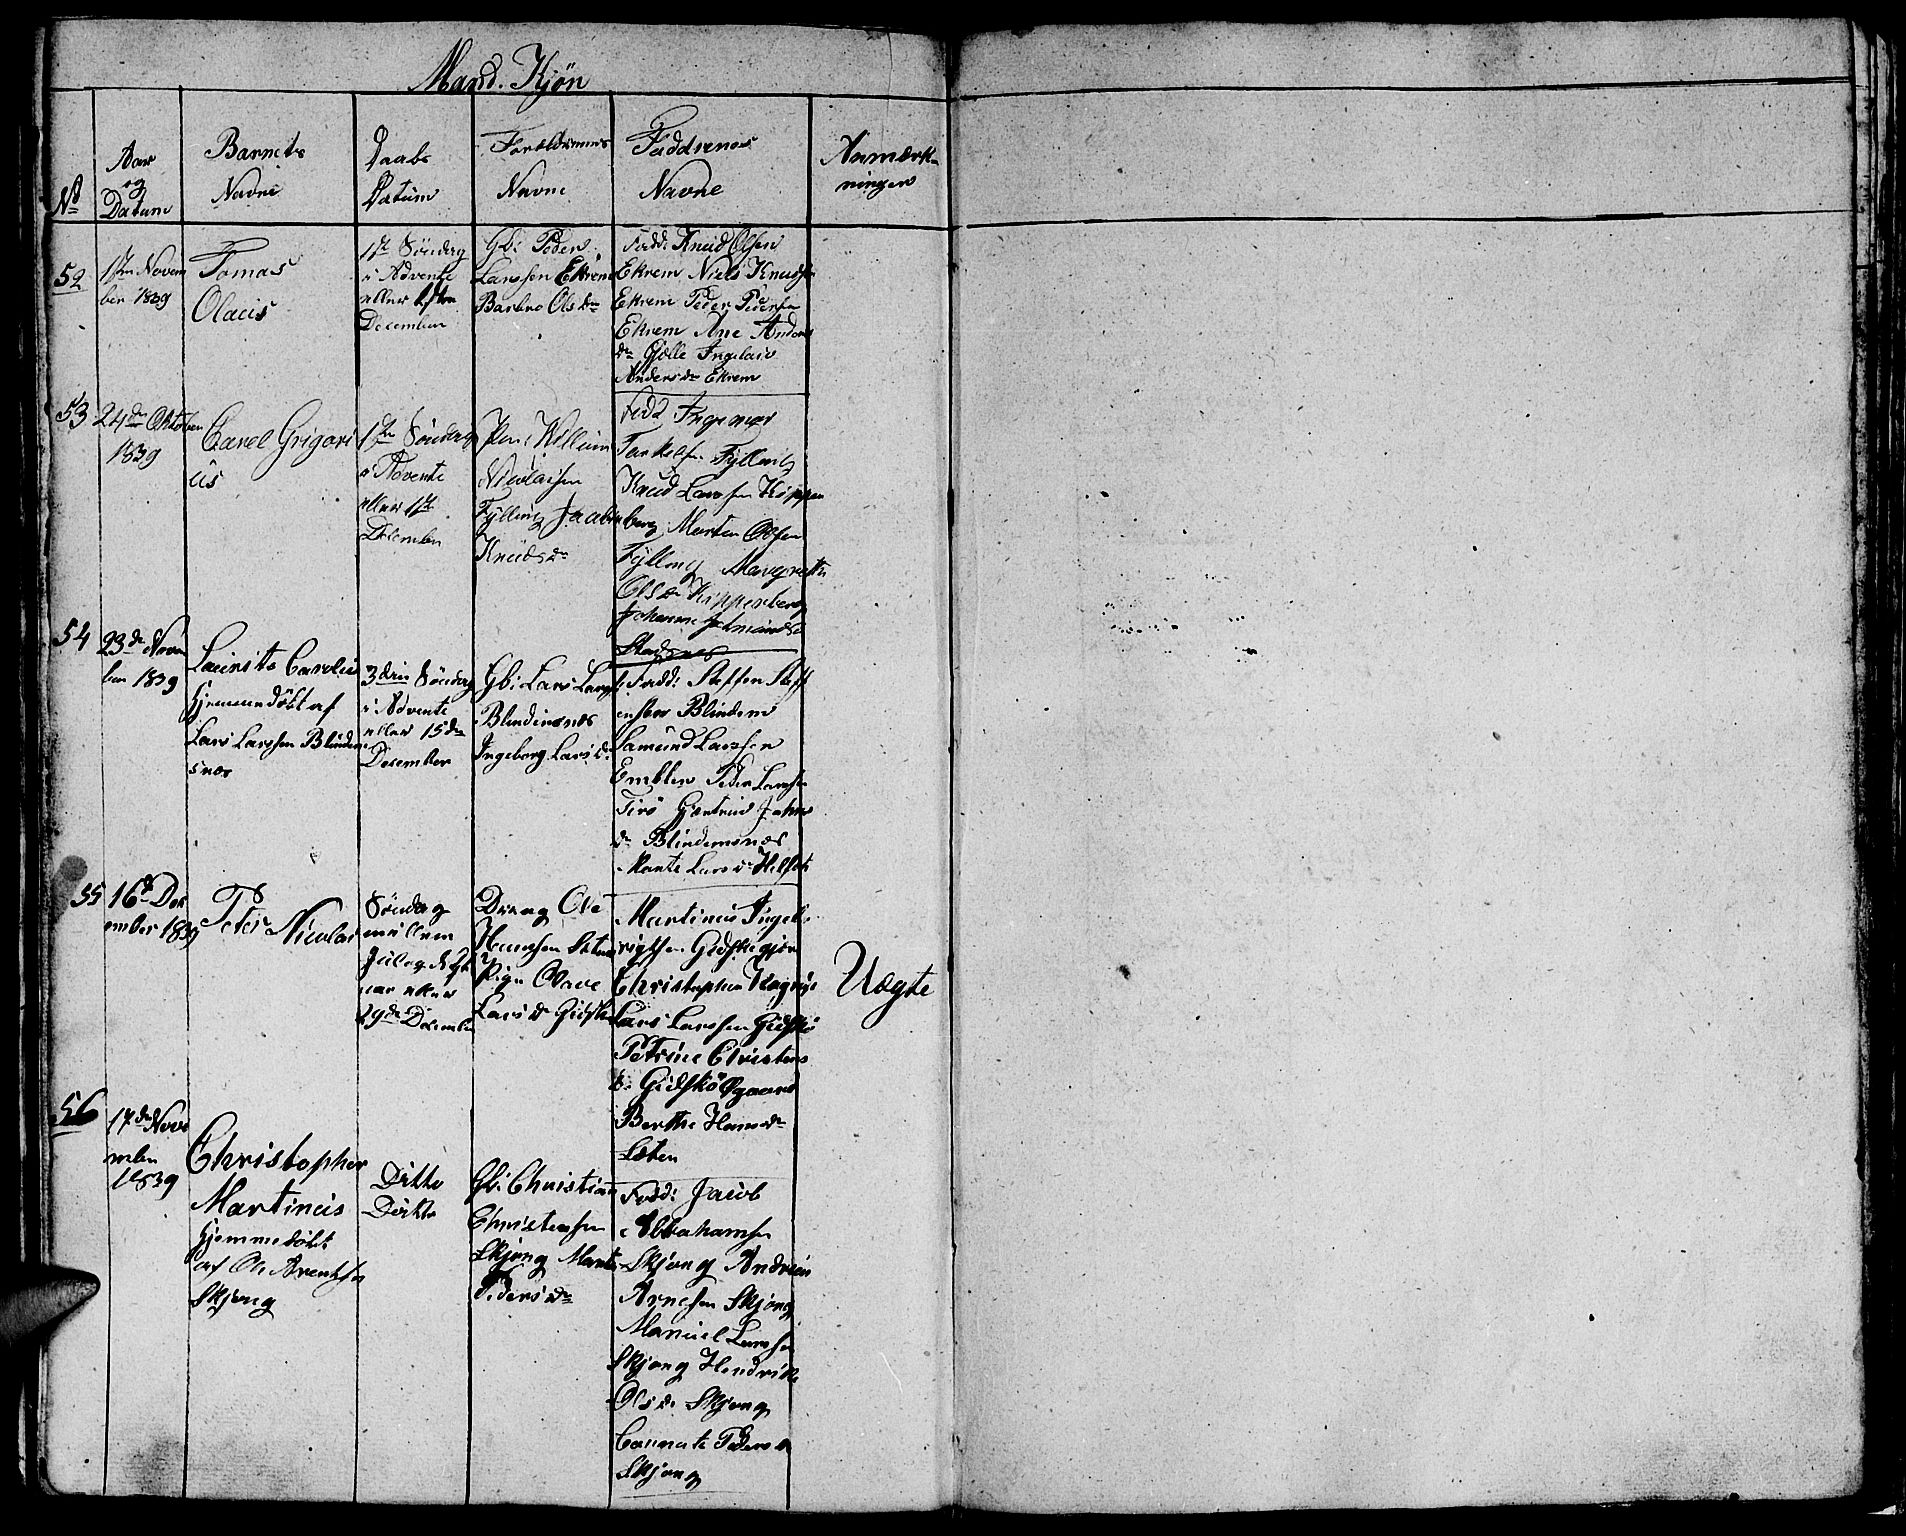 Mand. Kjøn
No
Aar
og
Datum
Barnets
Navne
Daabs
Datum
Forældrenes
Navne
Faddrenes
Navne
Anmærk-
ninger
52
1ste Novem
ber 1839
Tomas
Olaus
1ste Söndag
i Advente
eller 1ste
December
Gb: Peder
Larsen Ekrem
Barbro Olsdr
Fadd: Knud Olsen
Ekrem Niels Knudsen
Ekrem Peder Pedersen
Ekrem Ane Anders
dr Gjølle Ingebor
Andersdr Ekrem
53
24de Oktober
1839
Carel Grigori
us
1ste Söndag
i Advente
eller 1ste
December
Willum
Nicolaisen
Fylling
Knudsdr
Fadd Ingemar
Torkelsen Fylling
Knud Larssen Kippen
berg Morten Olsen
Fylling Margrethe
Olsdr Kippenberg
Johanne
54
23de Novem
ber 1839
Laurits Carolus
hjemmedöbt af
Lars Larssen Blindem
snæs
3die Söndag
i Advente
eller 15de
December
Gb: Lars Larss
Blindemsnæs
Ingeborg Larsdr
Fadd: Steffen Steff
ensen Blindem
Samund Larssen
Emblem Peder Larssen
Gjertrud Johns
dr Blindemsnæs
Marite Larsdr
55
16de Dec
ember 1839
Peter Nicolai
Söndag
mellem
Jul og Nyt
aar eller
29de December
Dreng Ole
Hanssen
Pige Olave
Larsdr Gidskö
Martinus Ingeb
rigtsen
Christopher
Lars Larssen Gidskö
Petrine Christens
dr Gidskö
Berthe Hansdr
Sæten
Uægte
56
17de Nove
mber
1839
Christopher
Martinus
hjemmedöbt
af Ole Arentsen
Skjong
Ditto
Ditto
Gb: Christian
Christensen
Skjong Marte
Pedersdr
Fadd: Jacob
Abrahamsen
Skjong Andreas
Arnesen Skjong
Manuel Larssen
Skjong Hendrike
Olsdr Skjong
Pedersdr
Skjong